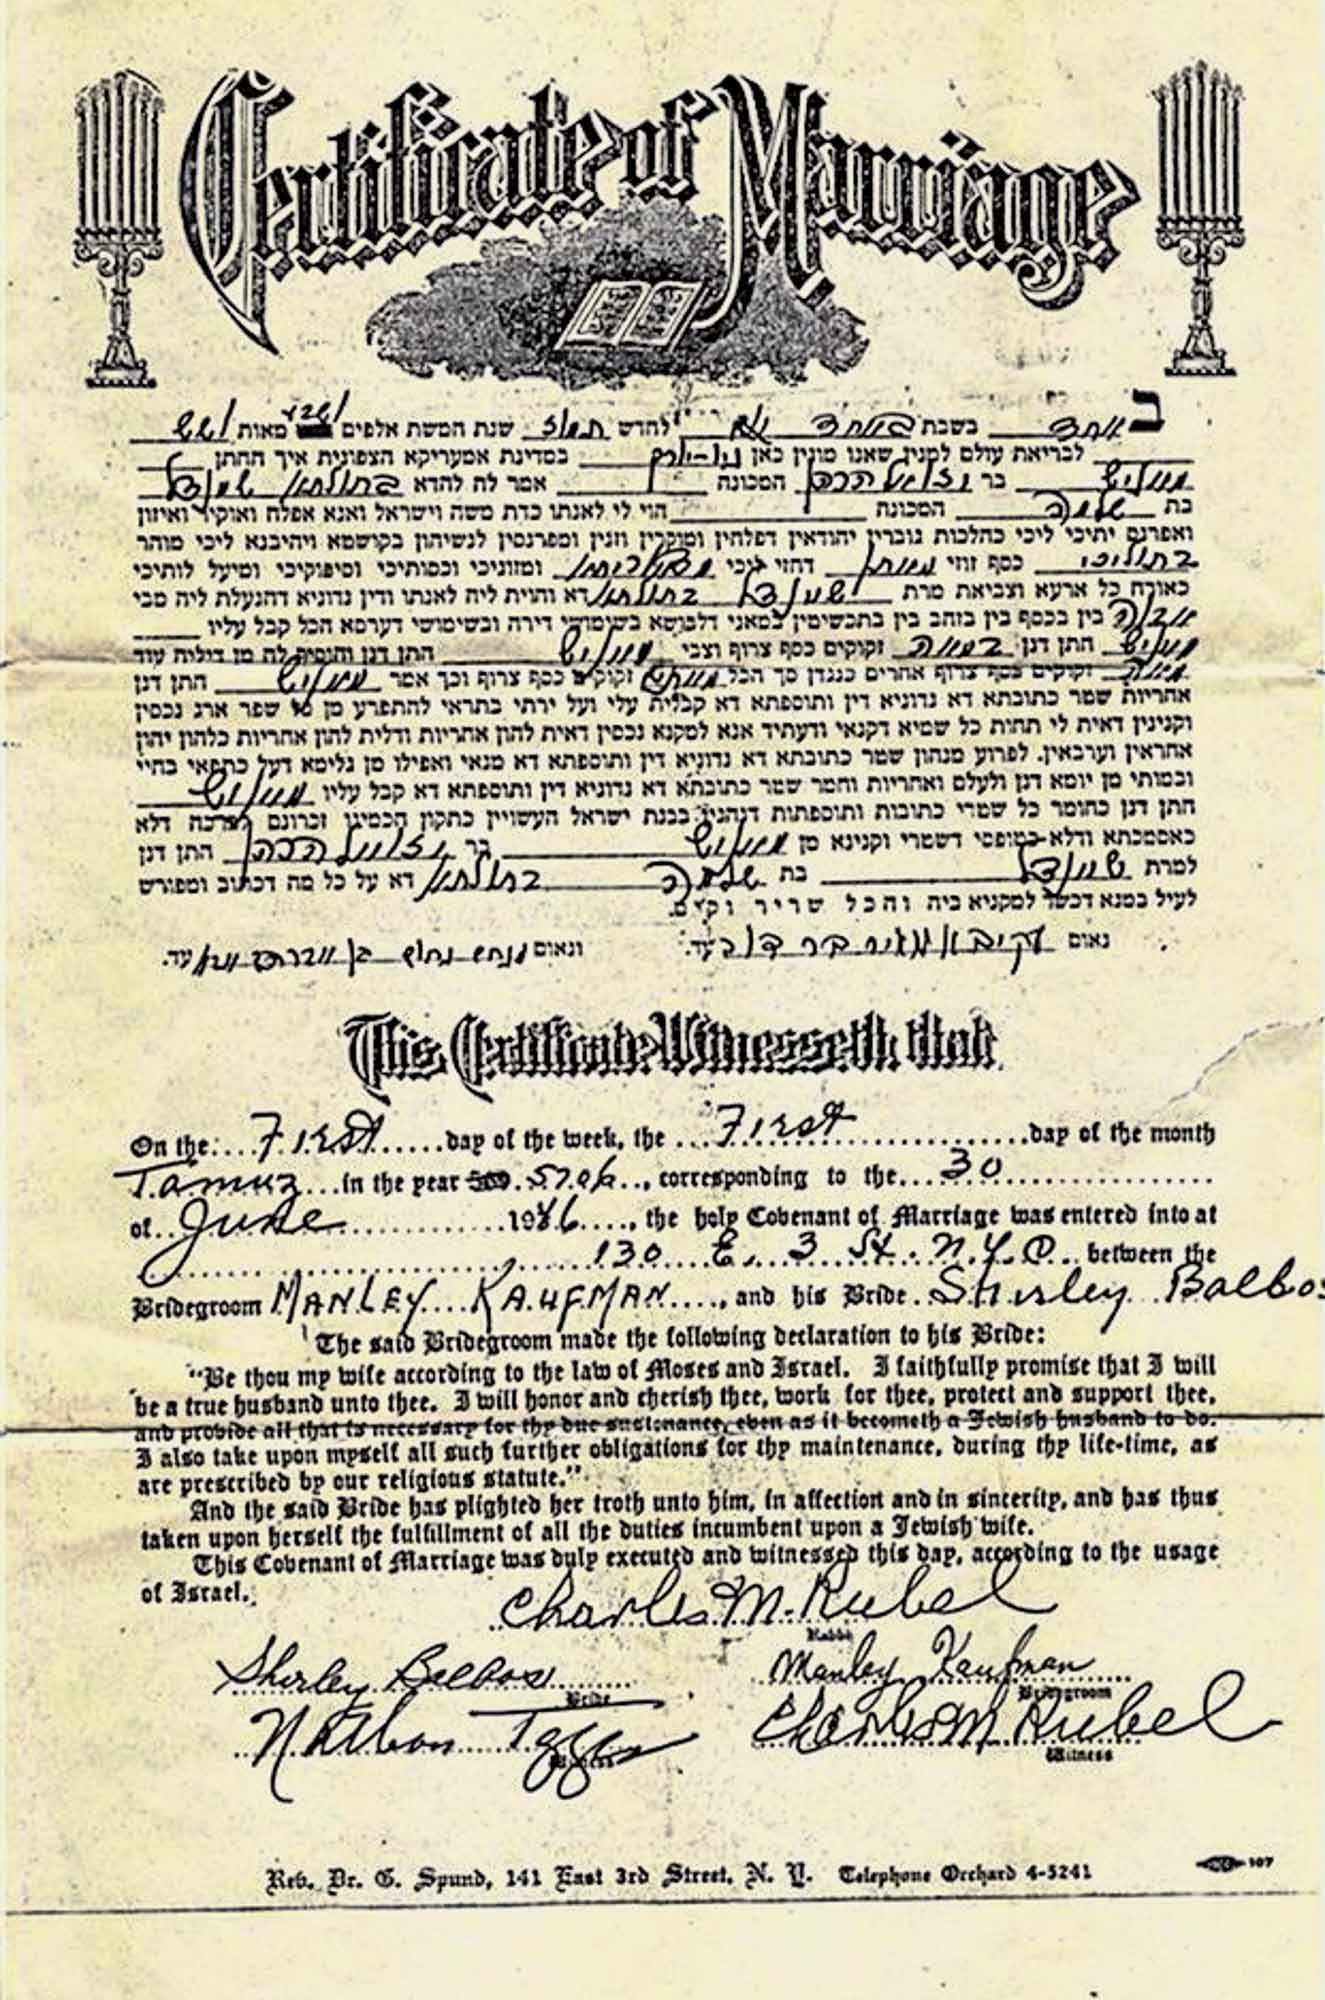 Certificate of Marriage
ב אחד בשבת באחד לחדש תמוז שנת חמשת אלפים מאות ושש
לבריאת עולם למנין שאנו מונין כאן ניו-יורק במדינת אמעריקא הצפונית איך החתן
בר המכונה אמר לה להדא בתולתא שיינדל
בת שלמה המכונה הוי לי לאנתו כדת משה וישראל ואנא אפלח ואוקיר ואיזון
ואפרנס יתיכי ליכי כהלכות גוברין יהודאין דפלחין ומוקרין וזנין ומפרנסין לנשיהון בקושטא ויהיבנא ליכי מוהר
בתוליכי כסף זוזי מאתן דחזי ליכי מדאורייתא ומזוניכי וכסותיכי וסיפוקיכי ומיעל לותיכי
כאורח כל ארעא וצביאת מרת שיינדל בתולתא דא והוית ליה לאנתו ודין נדוניא דהנעלת ליה מבי
אבוה בין בכסף בין בזהב בין בתכשיטין במאני דלבושא בשימושי דירה ובשימושי דערסא הכל קבל עליו
חתן דנן במאה זקוקים כסף צרוף וצבי חתן דנן והוסיף לה מן דיליה עוד
מאה זקוקים כסף צרוף אחרים כנגדן סך הכל מאתים זקוקים כסף צרוף וכך אמר חתן דנן
אחריות שטר כתובתא דא נדוניא דין ותוספתא דא קבלית עלי ועל ירתי בתראי להתפרע מן כל שפר ארג נכסין
וקנינין דאית לי תחות כל שמיא דקנאי ודעתיד אנא למקנא נכסין דאית להון אחריות ודלית להון אחריות כלהון יהון
אחראין וערבאין. לפרוע מנהון שטר כתובתא דא נדוניא דין ותוספתא דא מנאי ואפילו מן גלימא דעל כתפאי בחיי
ובמותי מן יומא דנן ולעלם ואחריות וחמר שטר כתובתא דא נדוניא דין ותוספתא דא קבל עליו
חתן דנן כחומר כל שטרי כתובות ותוספתות דנהגין בבנת ישראל העשויין כתקון חכמינו זכרונם לברכה דלא
כאסמכתא ודלא כטופסי דשטרי וקנינא מן בר חתן דנן
למרת שיינדל בת שלמה בתולתא דא על כל מה דכתוב ומפורש
לעיל במנא דכשר למקניא ביה והכל שריר וקים.
נאום עקיבא מאיר בר דוב עד. ונאום בן עד.
This Certificate Witnesseth that
On the First day of the week, the First day of the month
Tamuz in the year 5706, corresponding to the 30
of June 1946, the holy Covenant of Marriage was entered into at
130 E. 3 St. N.Y.C. between the
Bridegroom MANLEY KAUFMAN, and his Bride Shirley Balbos
The said Bridegroom made the following declaration to his Bride:
"Be thou my wife according to the law of Moses and Israel. I faithfully promise that I will
be a true husband unto thee. I will honor and cherish thee, work for thee, protect and support thee,
and provide all that is necessary for thy due sustenance, even as it becometh a Jewish husband to do.
I also take upon myself all such further obligations for thy maintenance, during thy life-time, as
are prescribed by our religious statute."
And the said Bride has plighted her troth unto him, in affection and in sincerity, and has thus
taken upon herself the fulfillment of all the duties incumbent upon a Jewish wife.
This Covenant of Marriage was duly executed and witnessed this day, according to the usage
of Israel.
Charles M. Rubel
Rabbi
Shirley Balbos Manley Kaufman
Bride Bridegroom
Nathan Charles M Rubel
Witness Witness
Rev. Dr. G. Spund, 141 East 3rd Street, N. Y. Telephone Orchard 4-5241
107